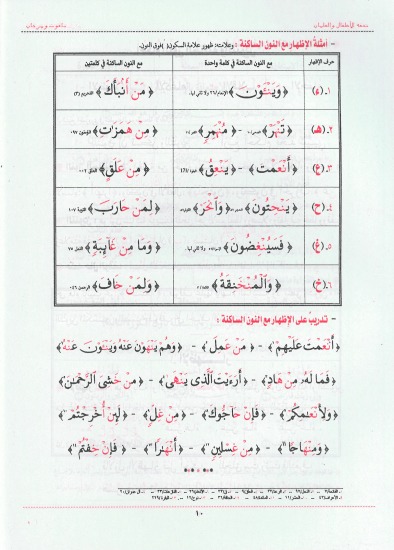 تحفة الأطفال والغلمان
– أمثلة الإظهار مع النون الساكنة : وعلامته: ظهور علامة السكون فوق النون.
حرف الإظهار مع النون الساكنة في كلمة واحدة مع النون الساكنة في كلمتين
١ـ (ء) ﴿ وَيَنْـَٔوْنَ ﴾ الأنعام/٢٦ ولا ثاني لها. ﴿ مَنْ أَنۢبَأَكَ ﴾ التحريم (٣)
٢ـ (هـ) ﴿ تَنْهَرْ ﴾ – ﴿ مُنْهَمِرٍ ﴾ ﴿ مِنْ هَمَزَٰتِ ﴾ المؤمنون ٩٧
٣ـ (ع) ﴿ أَنْعَمْتَ ﴾ – ﴿ يَنْعِقُ ﴾ ﴿ مِنْ عَلَقٍ ﴾ العلق ٠٠٢
٤ـ (ح) ﴿ يَنْحِتُونَ ﴾ ﴿ وَٱنْحَرْ ﴾ ﴿ لِمَنْ حَارَبَ ﴾ التوبة ١٠٧
٥ـ (غ) ﴿ فَسَيُنْغِضُونَ ﴾ ولا ثاني لها. ﴿ وَمَا مِنْ غَآئِبَةٍ ﴾ النمل ٧٥
٦ـ (خ) ﴿ وَٱلْمُنْخَنِقَةُ ﴾ ﴿ وَلِمَنْ خَافَ ﴾ الرحمن ٠٤٦
– تدريب على الإظهار مع النون الساكنة :
﴿ أَنْعَمْتَ عَلَيْهِمْ ﴾ – ﴿ مَنْ عَمِلَ ﴾ – ﴿ وَهُمْ يَنْهَوْنَ عَنْهُ وَيَنْـَٔوْنَ عَنْهُ ﴾
﴿ فَمَا لَهُۥ مِنْ هَادٍ ﴾ – ﴿ أَرَءَيْتَ ٱلَّذِى يَنْهَىٰ ﴾ – ﴿ مَنْ خَشِىَ ٱلرَّحْمَٰنَ ﴾
﴿ وَلِأَنْعَٰمِكُمْ ﴾ – ﴿ فَإِنْ حَآجُّوكَ ﴾ – ﴿ مِنْ غِلٍّ ﴾ – ﴿ لَئِنْ أُخْرِجْتُمْ ﴾
﴿ وَمِنْهَاجًا ﴾ – ﴿ مِنْ غِسْلِينٍ ﴾ – ﴿ أَنْهَٰرًا ﴾ – ﴿ فَإِنْ خِفْتُمْ ﴾
١٠